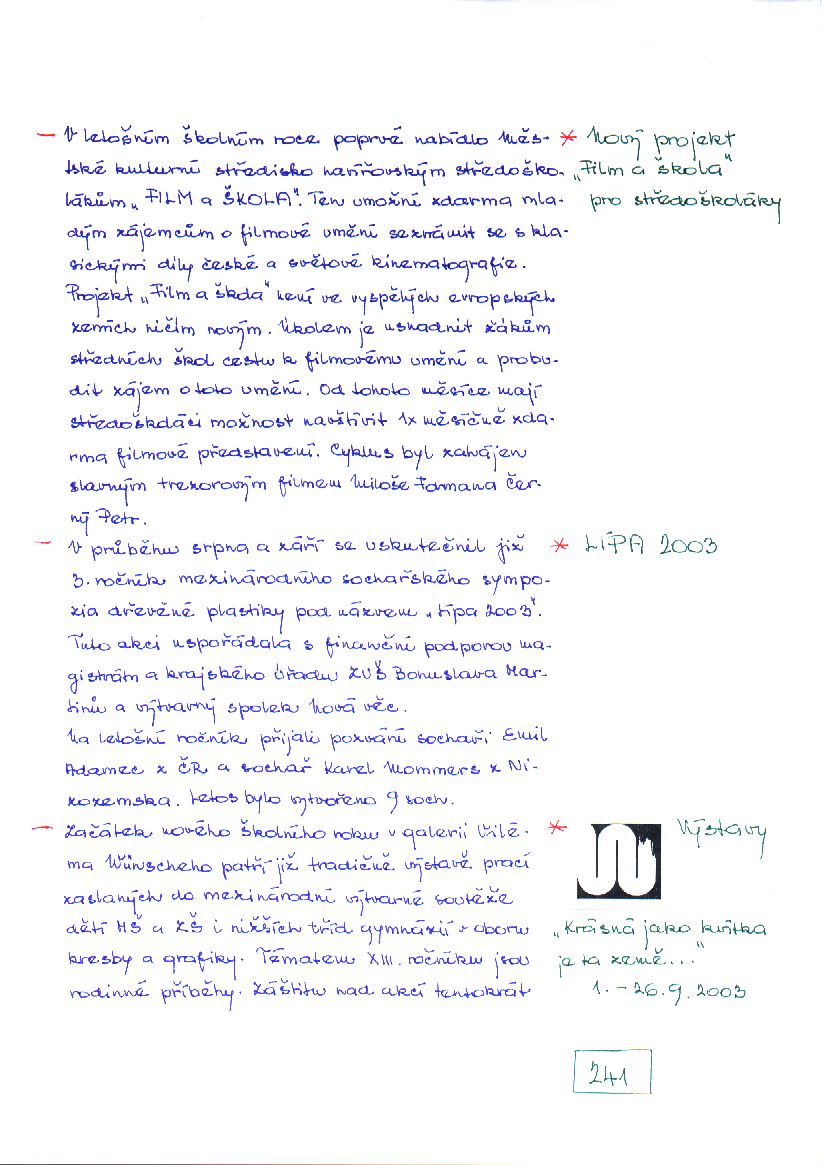 – V letošním školním roce poprvé nabídlo Měs-
tské kulturní středisko havířovským středoško-
lákům „FILM a ŠKOLA". Ten umožní zdarma mla-
dým zájemcům o filmové umění seznámit se s kla-
sickými díly české a světové kinematografie.
Projekt „Film a škola" není ve vyspělých evropských
zemích ničím novým. Úkolem je usnadnit žákům
středních škol cestu k filmovému umění a probu-
dit zájem o toto umění. Od tohoto měsíce mají
středoškoláci možnost navštívit 1x měsíčně zda-
rma filmové představení. Cyklus byl zahájen
slavným trezorovým filmem Miloše Formana Čer-
ný Petr.
* Nový projekt
„Film a škola"
pro středoškoláky
– V průběhu srpna a září se uskutečnil již
3. ročník mezinárodního sochařského sympo-
zia dřevěné plastiky pod názvem „Lípa 2003".
Tuto akci uspořádala s finanční podporou ma-
gistrátu a krajského úřadu ZUŠ Bohuslava Mar-
tinů a výtvarný spolek Nová věc.
Na letošní ročník přijali pozvání sochaři Emil
Adamec z ČR a sochař Karel Mommers z Ni-
zozemska. Letos bylo vytvořeno 9 soch.
* LÍPA 2003
– Začátek nového školního roku v galerii Vilé-
ma Wünscheho patří již tradičně výstavě prací
zaslaných do mezinárodní výtvarné soutěže
dětí MŠ a ZŠ i nižších tříd gymnázií v oboru
kresby a grafiky. Tématem XIII. ročníku jsou
rodinné příběhy. Záštitu nad akcí tentokrát
* Výstavy
„Krásná jako kvítka
je ta země..."
1. – 26.9.2003
241